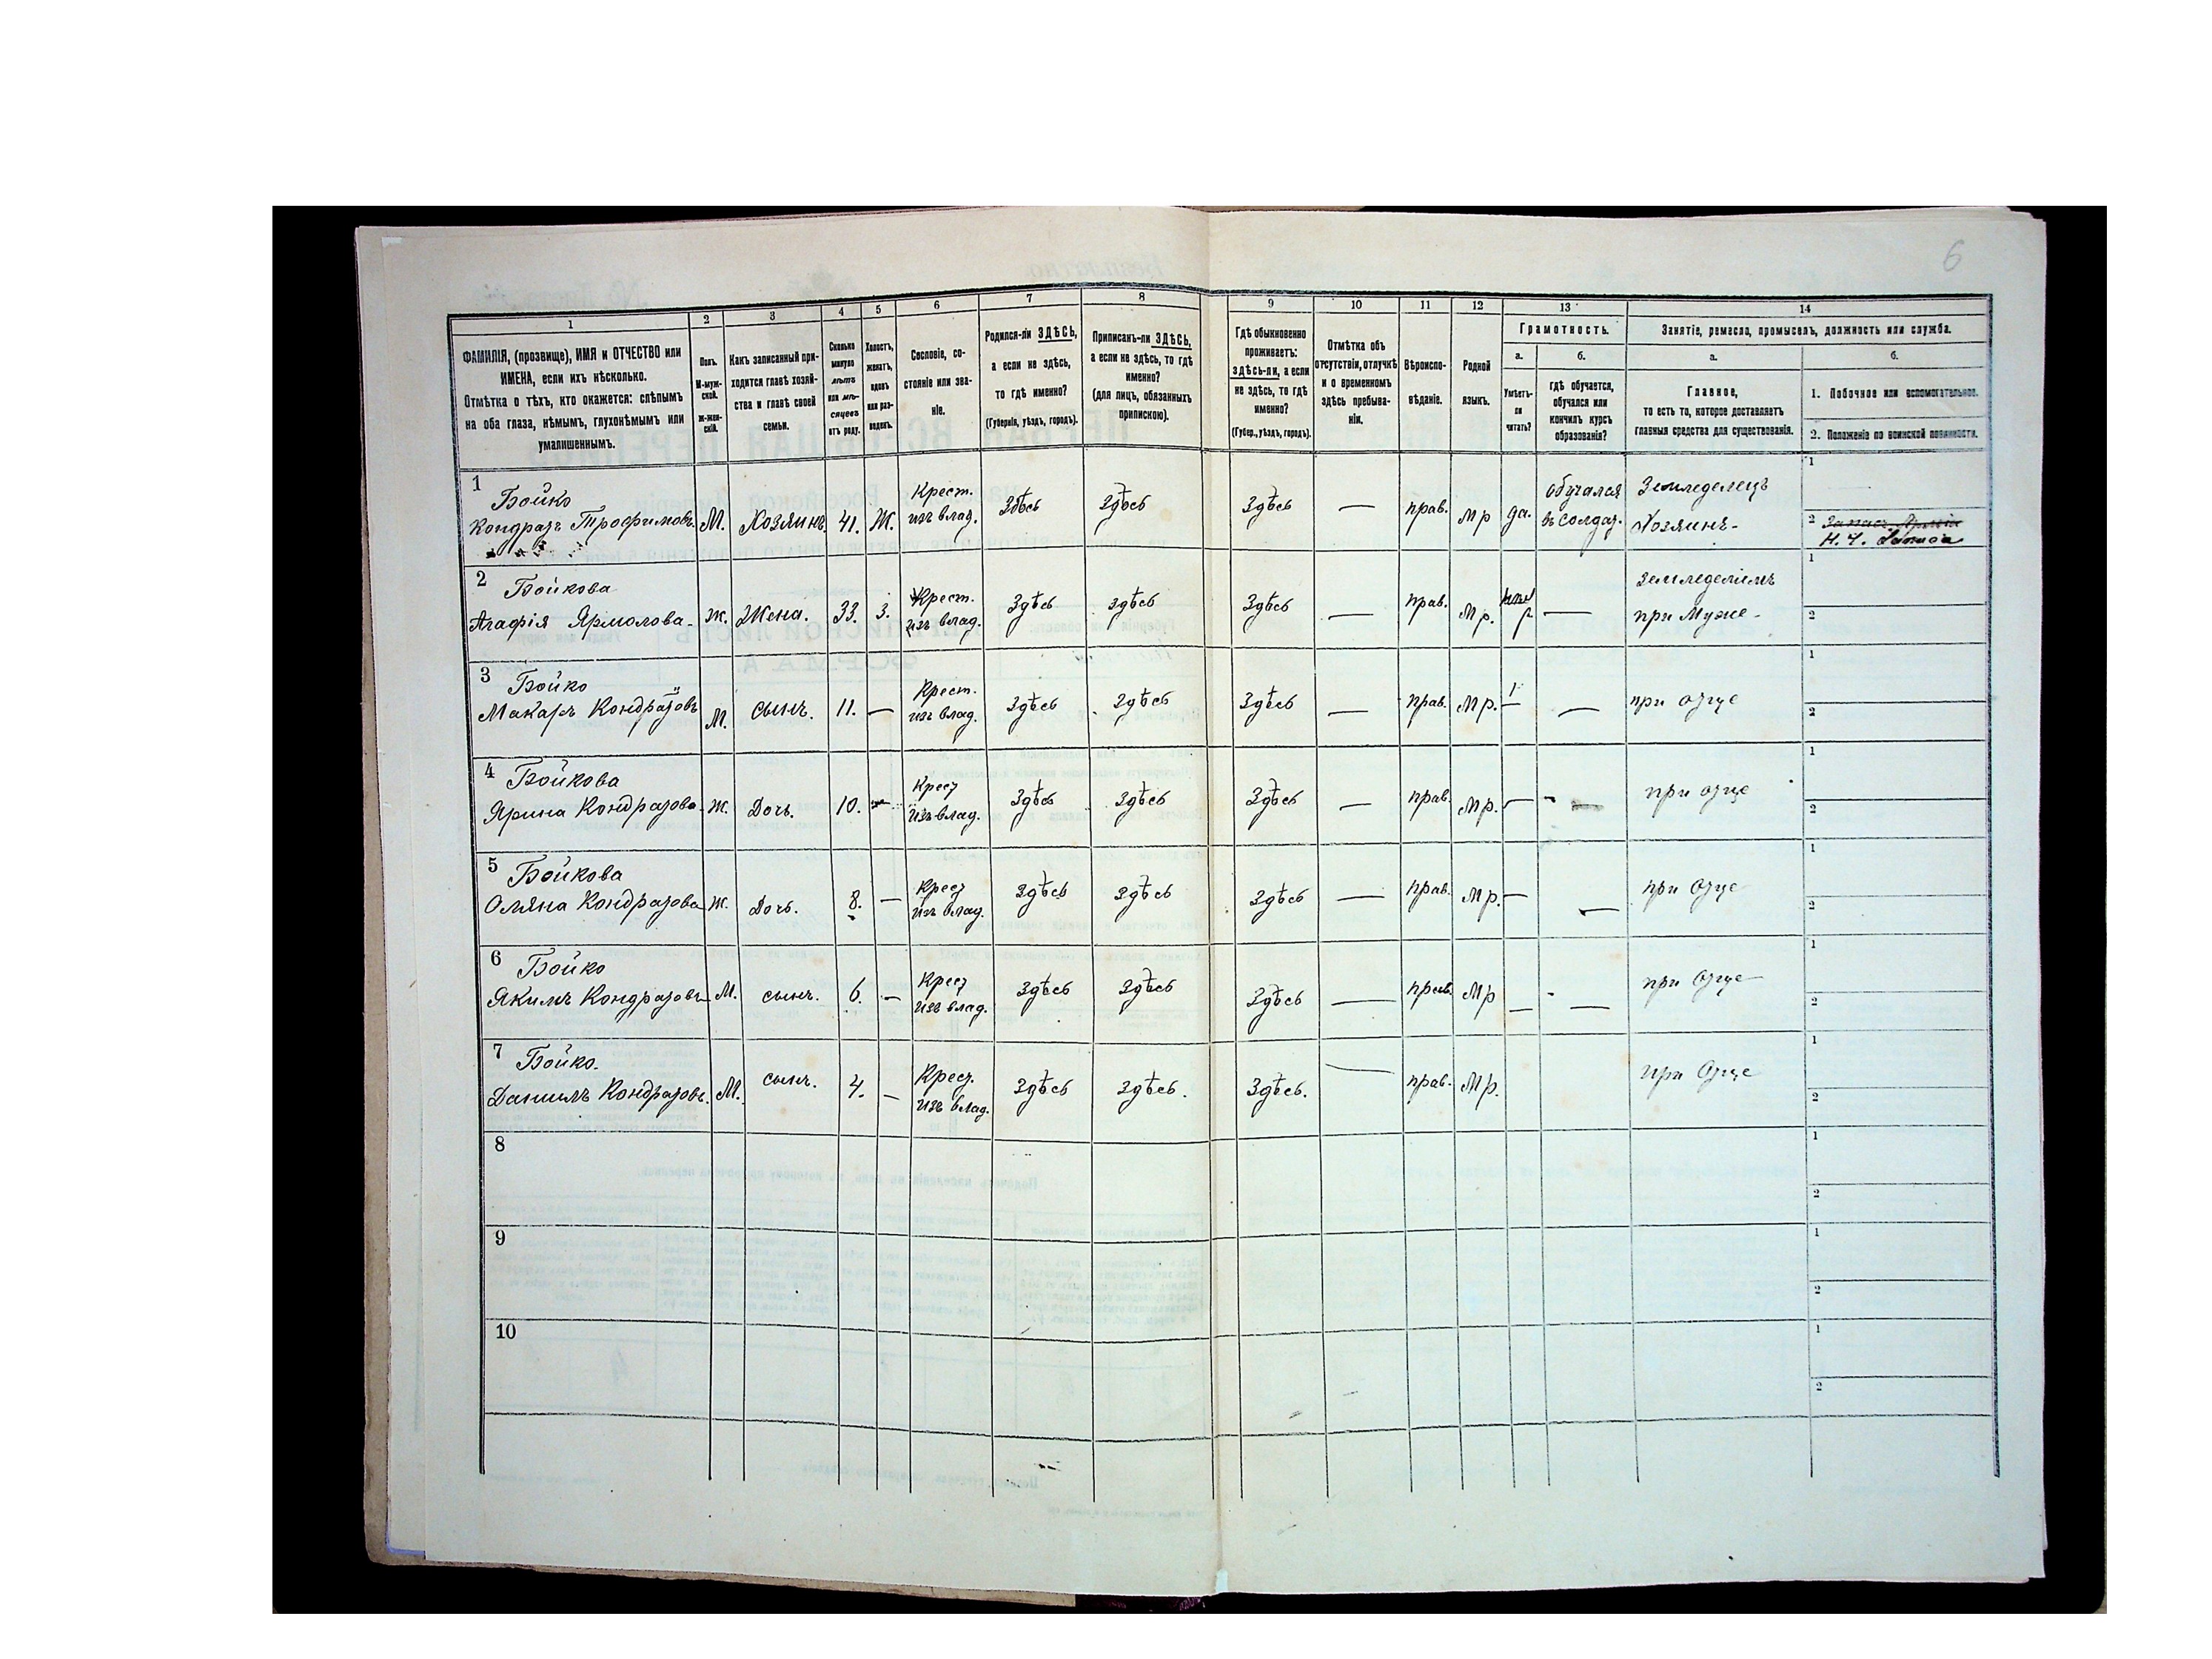 6
1
2
3
4
5
6
7
8
9
10
11
12
13
14
ФАМИЛІЯ, (прозвище), ИМЯ и ОТЧЕСТВО или
ИМЕНА, если ихъ нѣсколько.
Отмѣтка о тѣхъ, кто окажется: слѣпымъ
на оба глаза, нѣмымъ, глухонѣмымъ или
умалишеннымъ.
Полъ.
М-муж-
ской.
Ж-жен-
скій.
Какъ записанный при-
ходится главѣ хозяй-
ства и главѣ своей
семьи.
Сколько
минуло
лѣтъ
или мѣ-
сяцевъ
отъ роду.
Холостъ,
женатъ,
вдовъ
или раз-
веденъ.
Сословіе, со-
стояніе или зва-
ніе.
Родился-ли ЗДѢСЬ,
а если не здѣсь,
то гдѣ именно?
(Губернія, уѣздъ, городъ).
Приписанъ-ли ЗДѢСЬ,
а если не здѣсь, то гдѣ
именно?
(для лицъ, обязанныхъ
припискою).
Гдѣ обыкновенно
проживаетъ:
ЗДѢСЬ-ЛИ, а если
не здѣсь, то гдѣ
именно?
(Губер., уѣздъ, городъ).
Отмѣтка объ
отсутствіи, отлучкѣ
и о временномъ
здѣсь пребыва-
ніи.
Вѣроиспо-
вѣданіе.
Родной
языкъ.
Грамотность.
а.
Умѣетъ-
ли
читать?
б.
гдѣ обучается,
обучался или
кончилъ курсъ
образованія?
Занятіе, ремесло, промыселъ, должность или служба.
а.
Главное,
то есть то, которое доставляетъ
главныя средства для существованія.
б.
1. Побочное или вспомогательное.
2. Положеніе по воинской повинности.
1 Бойко
Кондратъ Трофимовъ. М. Хозяинъ 41. Ж. Крест. изъ влад. Здѣсь Здѣсь Здѣсь — прав. Мр да. обучался въ солдат. Земледелецъ Хозяинъ - 1
2 Запасъ Арміи
Н. Ч. Запаса
2 Бойкова
Агафія Ярмолова - Ж. Жена. 33. З. Крест. изъ влад. Здѣсь здѣсь Здѣсь — прав. Мр. — Земледеліемъ при Муже - 1
2
3 Бойко
Макаръ Кондратовъ М. сынъ. 11. — Крест. изъ влад. Здѣсь Здѣсь Здѣсь — прав. Мр. — — при отце 1
2
4 Бойкова
Ярина Кондратова Ж. Дочь. 10. — Крест изъ влад. Здѣсь Здѣсь Здѣсь — прав. Мр. — — при отце 1
2
5 Бойкова
Оляна Кондратова Ж. Дочь. 8. — Крест изъ влад. Здѣсь Здѣсь Здѣсь — прав. Мр. — — при Отце 1
2
6 Бойко
Якимъ Кондратовъ М. сынъ. 6. — Крест изъ влад. Здѣсь Здѣсь Здѣсь — прав. Мр — — при Отце 1
2
7 Бойко.
Данилъ Кондратовъ. М. сынъ. 4. — Крест. изъ влад. Здѣсь Здѣсь. Здѣсь. — прав. Мр. при Отце 1
2
8 1
2
9 1
2
10 1
2